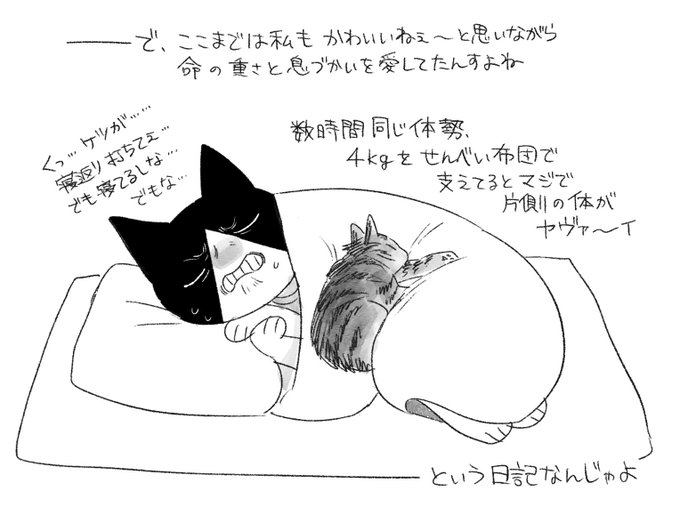 ――で、ここまでは私も かわいいねぇ〜と思いながら
命の重さと息づかいを愛してたんすよね
くっ…ケツが……
寝返り打ちてぇ…
でも寝てるしな…
でもな…
数時間同じ体勢、
4kgをせんべい布団で
支えてるとマジで
片側の体が
ヤヴァ〜イ
――という日記なんじゃよ